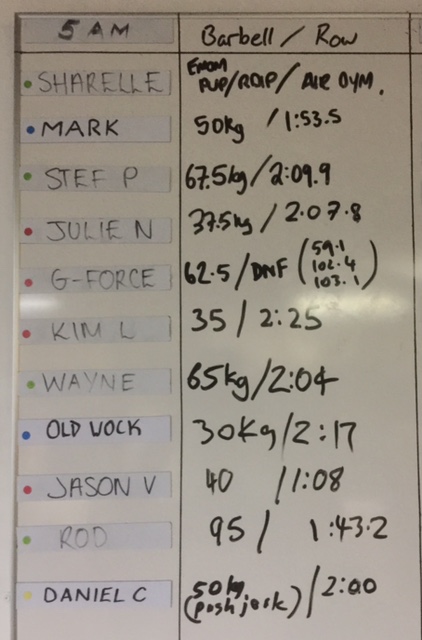 5 AM Barbell / Row
SHARELLE EMOM PUP/RDIP/ AIR DYM.
MARK 50kg / 1:53.5
STEF P 67.5kg / 2:09.9
JULIE N 37.5kg / 2:07.8
G-FORCE 62.5 / DNF ( 59.1 102.4 103.1 )
KIM L 35 / 2:25
WAYNE 65kg/2:04
OLD WOCK 30Kg/2:17
JASON V 40 / 1:08
ROD 95 / 1:43.2
DANIEL C 50kg (push jerk) / 2:00